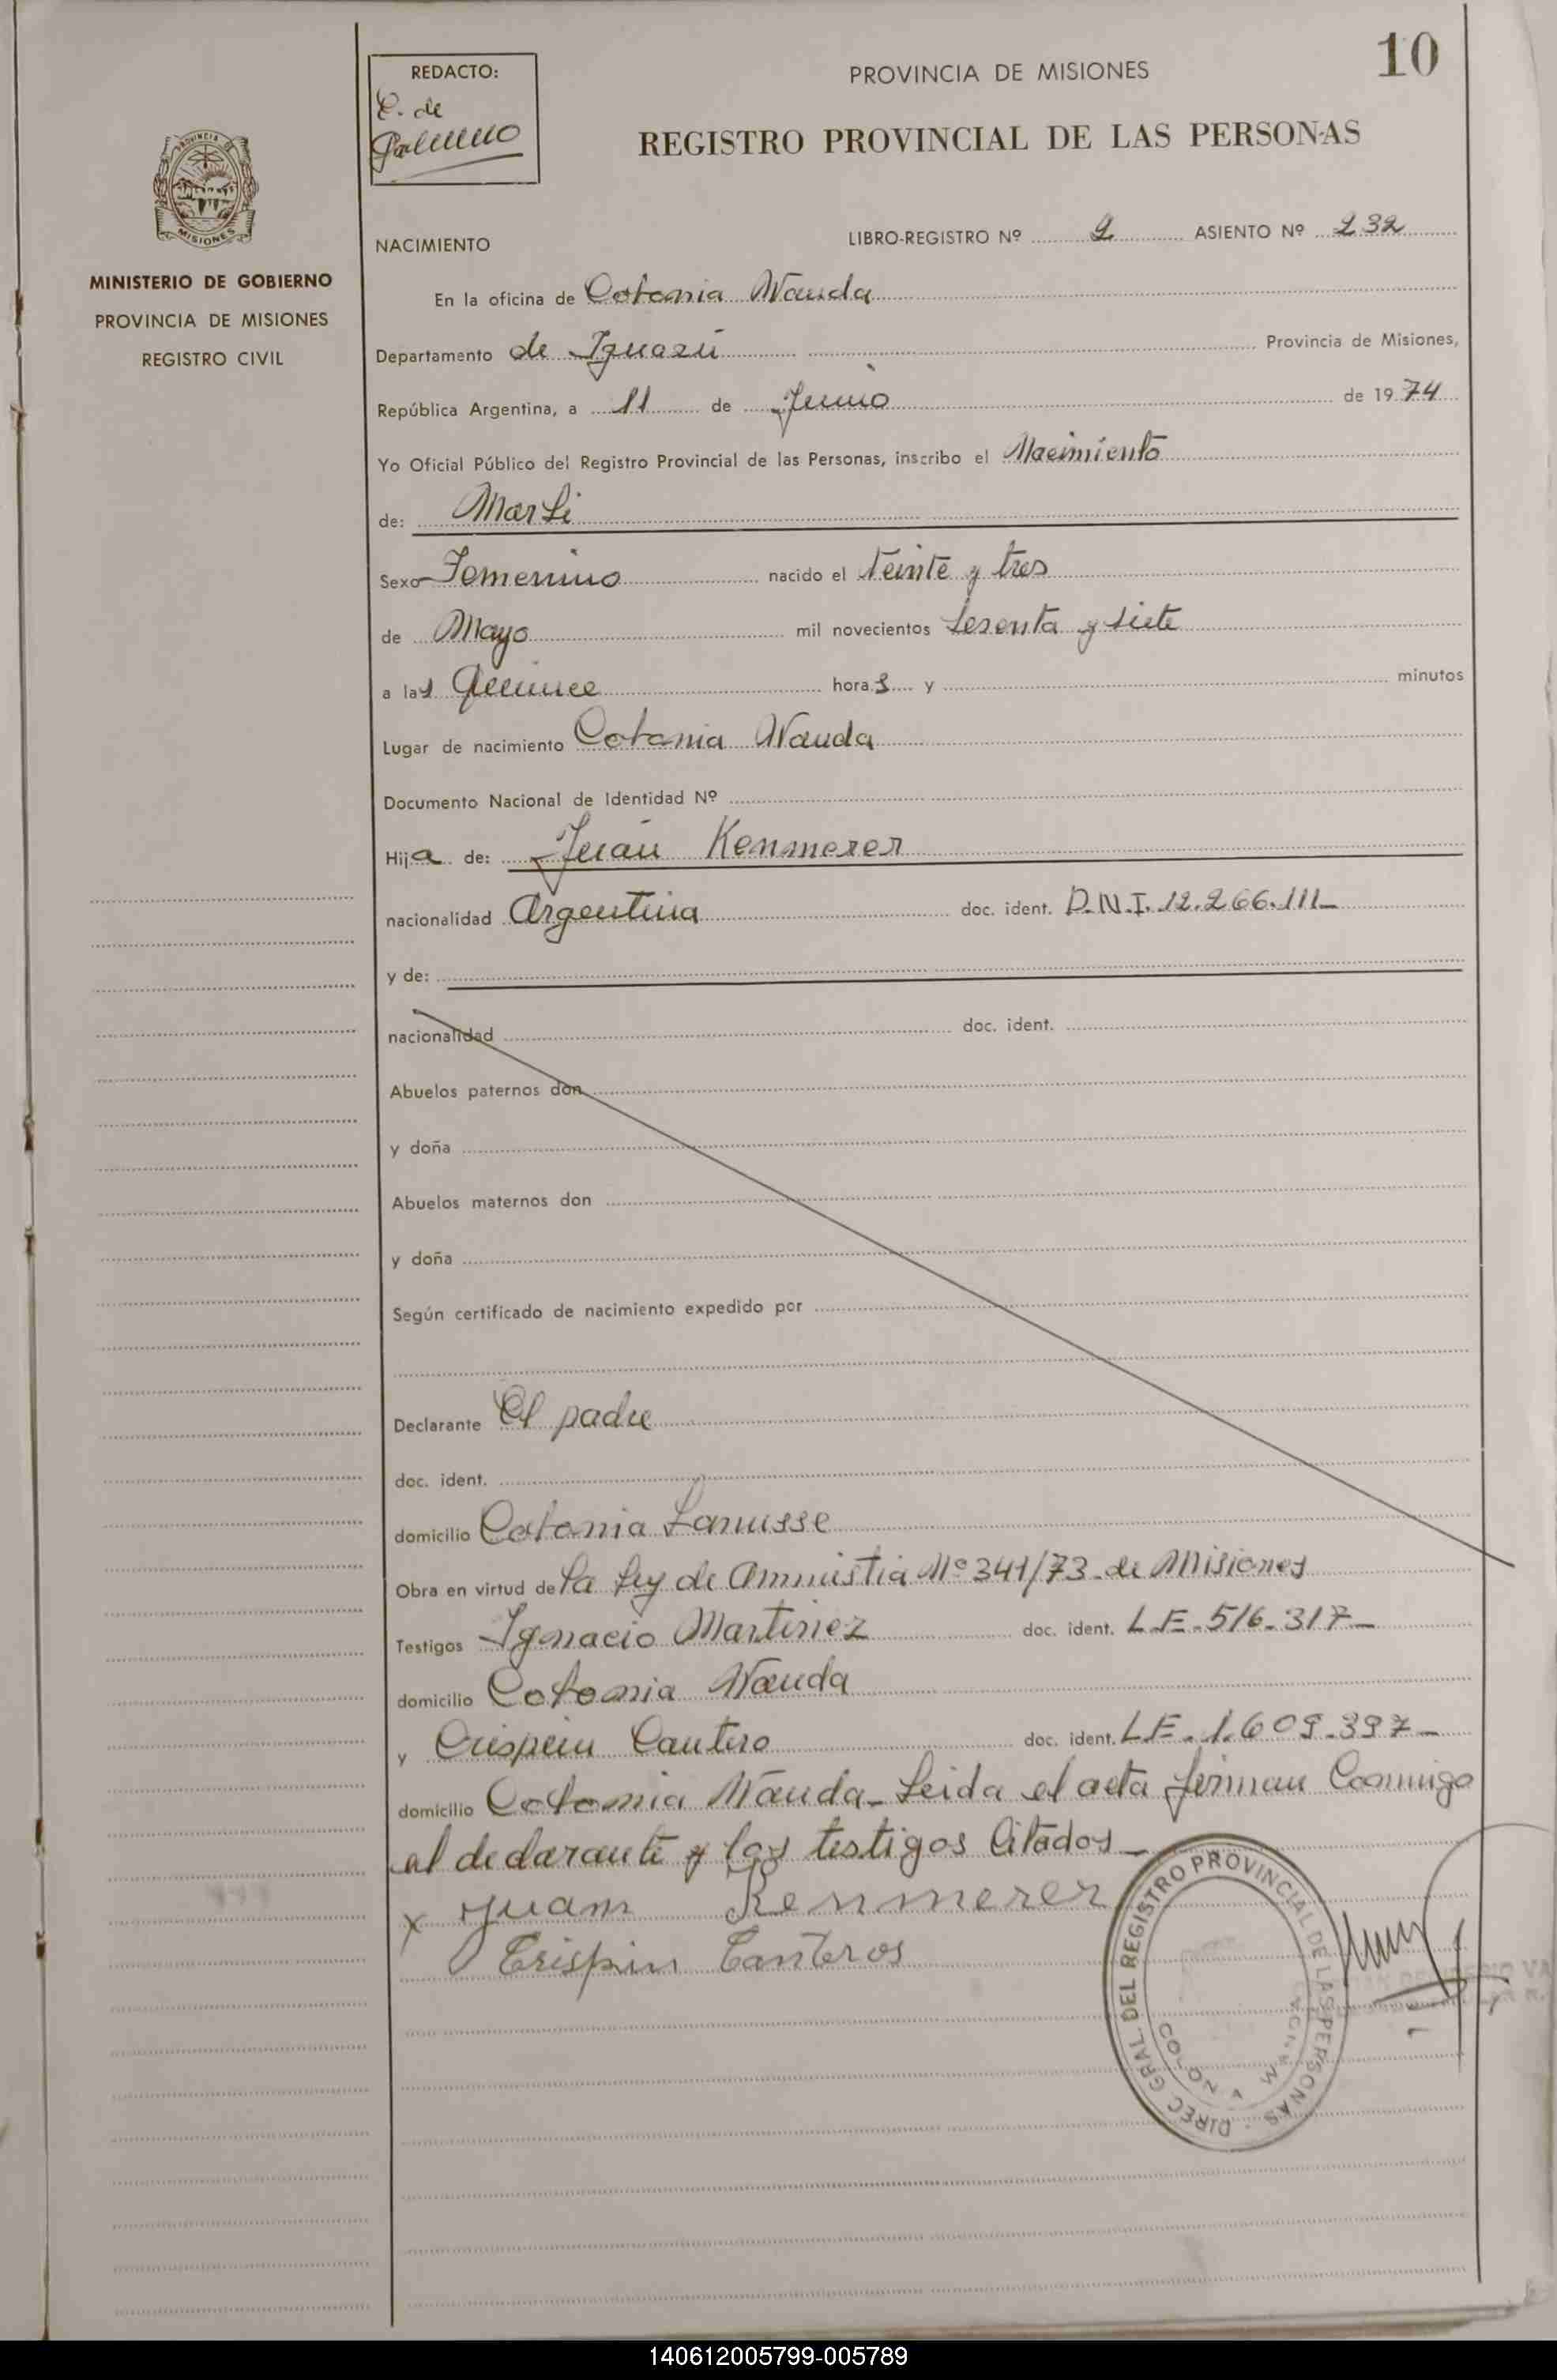 10
REDACTO:
E. de
Galeano
PROVINCIA DE MISIONES
REGISTRO PROVINCIAL DE LAS PERSONAS
PROVINCIA DE
MISIONES
MINISTERIO DE GOBIERNO
PROVINCIA DE MISIONES
REGISTRO CIVIL
NACIMIENTO
LIBRO-REGISTRO Nº 2 ASIENTO Nº 232
En la oficina de Colonia Wanda
Departamento de Iguazú Provincia de Misiones,
República Argentina, a 11 de Junio de 1974
Yo Oficial Público del Registro Provincial de las Personas, inscribo el Nacimiento
de: Marli
Sexo Femenino nacido el Veinte y tres
de Mayo mil novecientos Sesenta y siete
a las Quince horas y minutos
Lugar de nacimiento Colonia Wanda
Documento Nacional de Identidad Nº
Hija de: Juan Kenmerer
nacionalidad Argentina doc. ident. D.N.I. 12.266.111-
y de:
nacionalidad doc. ident.
Abuelos paternos don
y doña
Abuelos maternos don
y doña
Según certificado de nacimiento expedido por
Declarante El padre
doc. ident.
domicilio Colonia Lanusse
Obra en virtud de la Ley de Amnistia Nº 341/73- de Misiones
Testigos Ignacio Martinez doc. ident. L.E. 516.317-
domicilio Colonia Wanda
y Crispin Cantero doc. ident. L.E. 1.609.397-
domicilio Colonia Wanda- Leida el acta firman Conmigo
el declarante y los testigos Citados-
x Juan Kenmerer
Crispin Canteros
DIREC. GRAL. DEL REGISTRO PROVINCIAL DE LAS PERSONAS
COLONIA WANDA
140612005799-005789